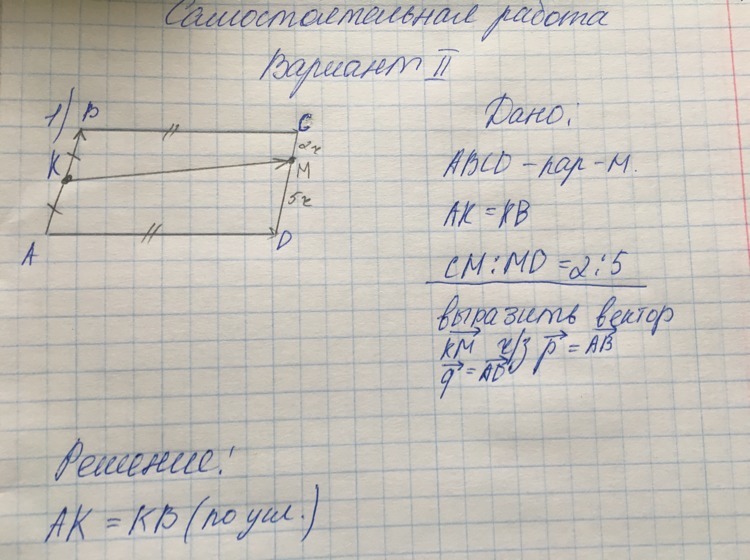 Самостоятельная работа
Вариант II
1)
B
C
2x
K
M
5x
A
D
Дано:
ABCD - пар-м.
AK = KB
CM : MD = 2 : 5
выразить вектор
KM ч/з p = AB
q = AD
Решение:
AK = KB (по усл.)